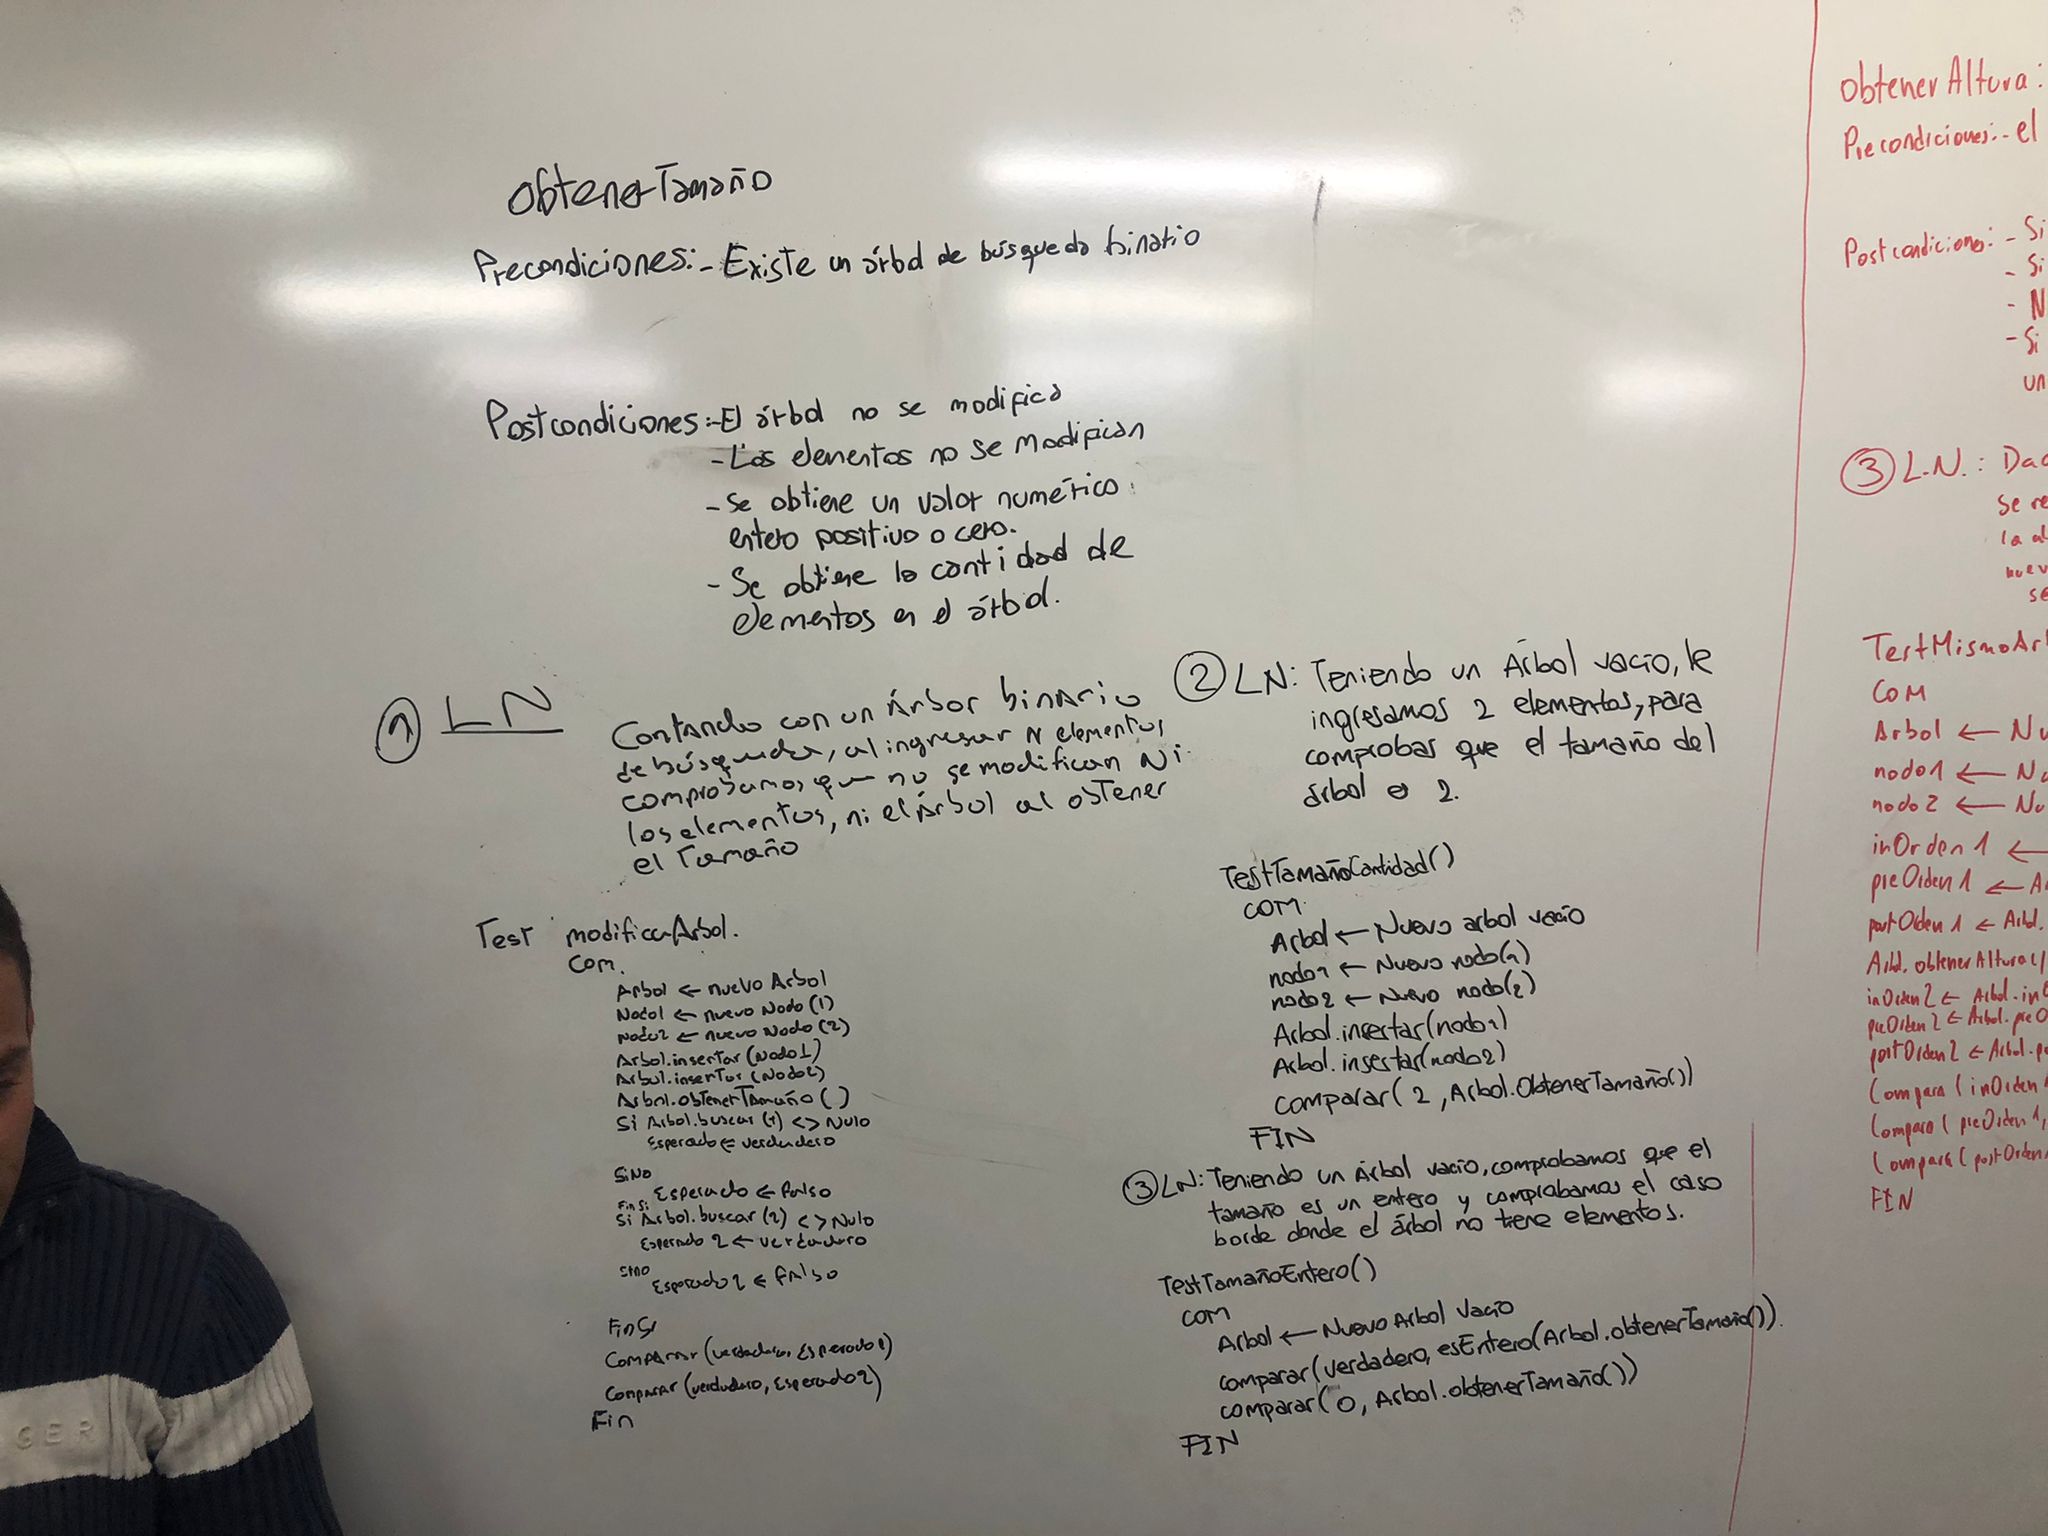 ObtenerTamaño
Precondiciones:- Existe un árbol de búsqueda binario
Postcondiciones:-El árbol no se modifica
-Los elementos no se modifican
-Se obtiene un valor numérico
entero positivo o cero.
- Se obtiene la cantidad de
elementos en el árbol.
1 LN
Contando con un Árbor binario
de búsqueda, al ingresar N elementos,
comprobamos que no se modifican Ni
los elementos, ni el Árbol al obtener
el Tamaño
Test modificaArbol.
Com.
Arbol ← nuevo Arbol
Nodo1 ← nuevo Nodo (1)
Nodo2 ← nuevo Nodo (2)
Arbol.insertar (Nodo1)
Arbol.insertar (Nodo2)
Arbol.obtenerTamaño ( )
Si Arbol.buscar (1) <> Nulo
Esperado ← verdadero
SiNo
Esperado ← falso
FinSi
Si Arbol.buscar (2) <> Nulo
Esperado 2 ← verdadero
SiNo
Esperado 2 ← falso
FinSi
Comparar (verdadero, Esperado1)
Comparar (verdadero, Esperado2)
Fin
2 LN: Teniendo un Árbol vacío, le
ingresamos 2 elementos, para
comprobar que el tamaño del
árbol es 2.
TestTamañoCantidad()
COM
Arbol ← Nuevo arbol vacío
nodo1 ← Nuevo nodo(1)
nodo2 ← Nuevo nodo(2)
Arbol.insertar(nodo1)
Arbol.insertar(nodo2)
comparar( 2 , Arbol.ObtenerTamaño())
FIN
3 LN: Teniendo un Árbol vacío, comprobamos que el
tamaño es un entero y comprobamos el caso
borde donde el árbol no tiene elementos.
TestTamañoEntero()
COM
Arbol ← Nuevo Arbol Vacío
comparar(verdadero, esEntero(Arbol.obtenerTamaño()).
comparar( 0, Arbol.obtenerTamaño())
FIN
obtenerAltura:
Precondiciones:- el
Postcondiciones: - Si
- Si
- N
- Si
un
3 L.N.: Dad
se re
la al
nuev
se
TestMismoArb
COM
Arbol ← Nu
nodo1 ← Nu
nodo2 ← Nu
inOrden1 ←
preOrden1 ← A
postOrden1 ← Arbol.
Arbol.obtenerAltura(
inOrden2 ← Arbol.inO
preOrden2 ← Arbol.preO
postOrden2 ← Arbol.po
Compara ( inOrden
Compara ( preOrden1,
Compara ( postOrden
FIN
GER